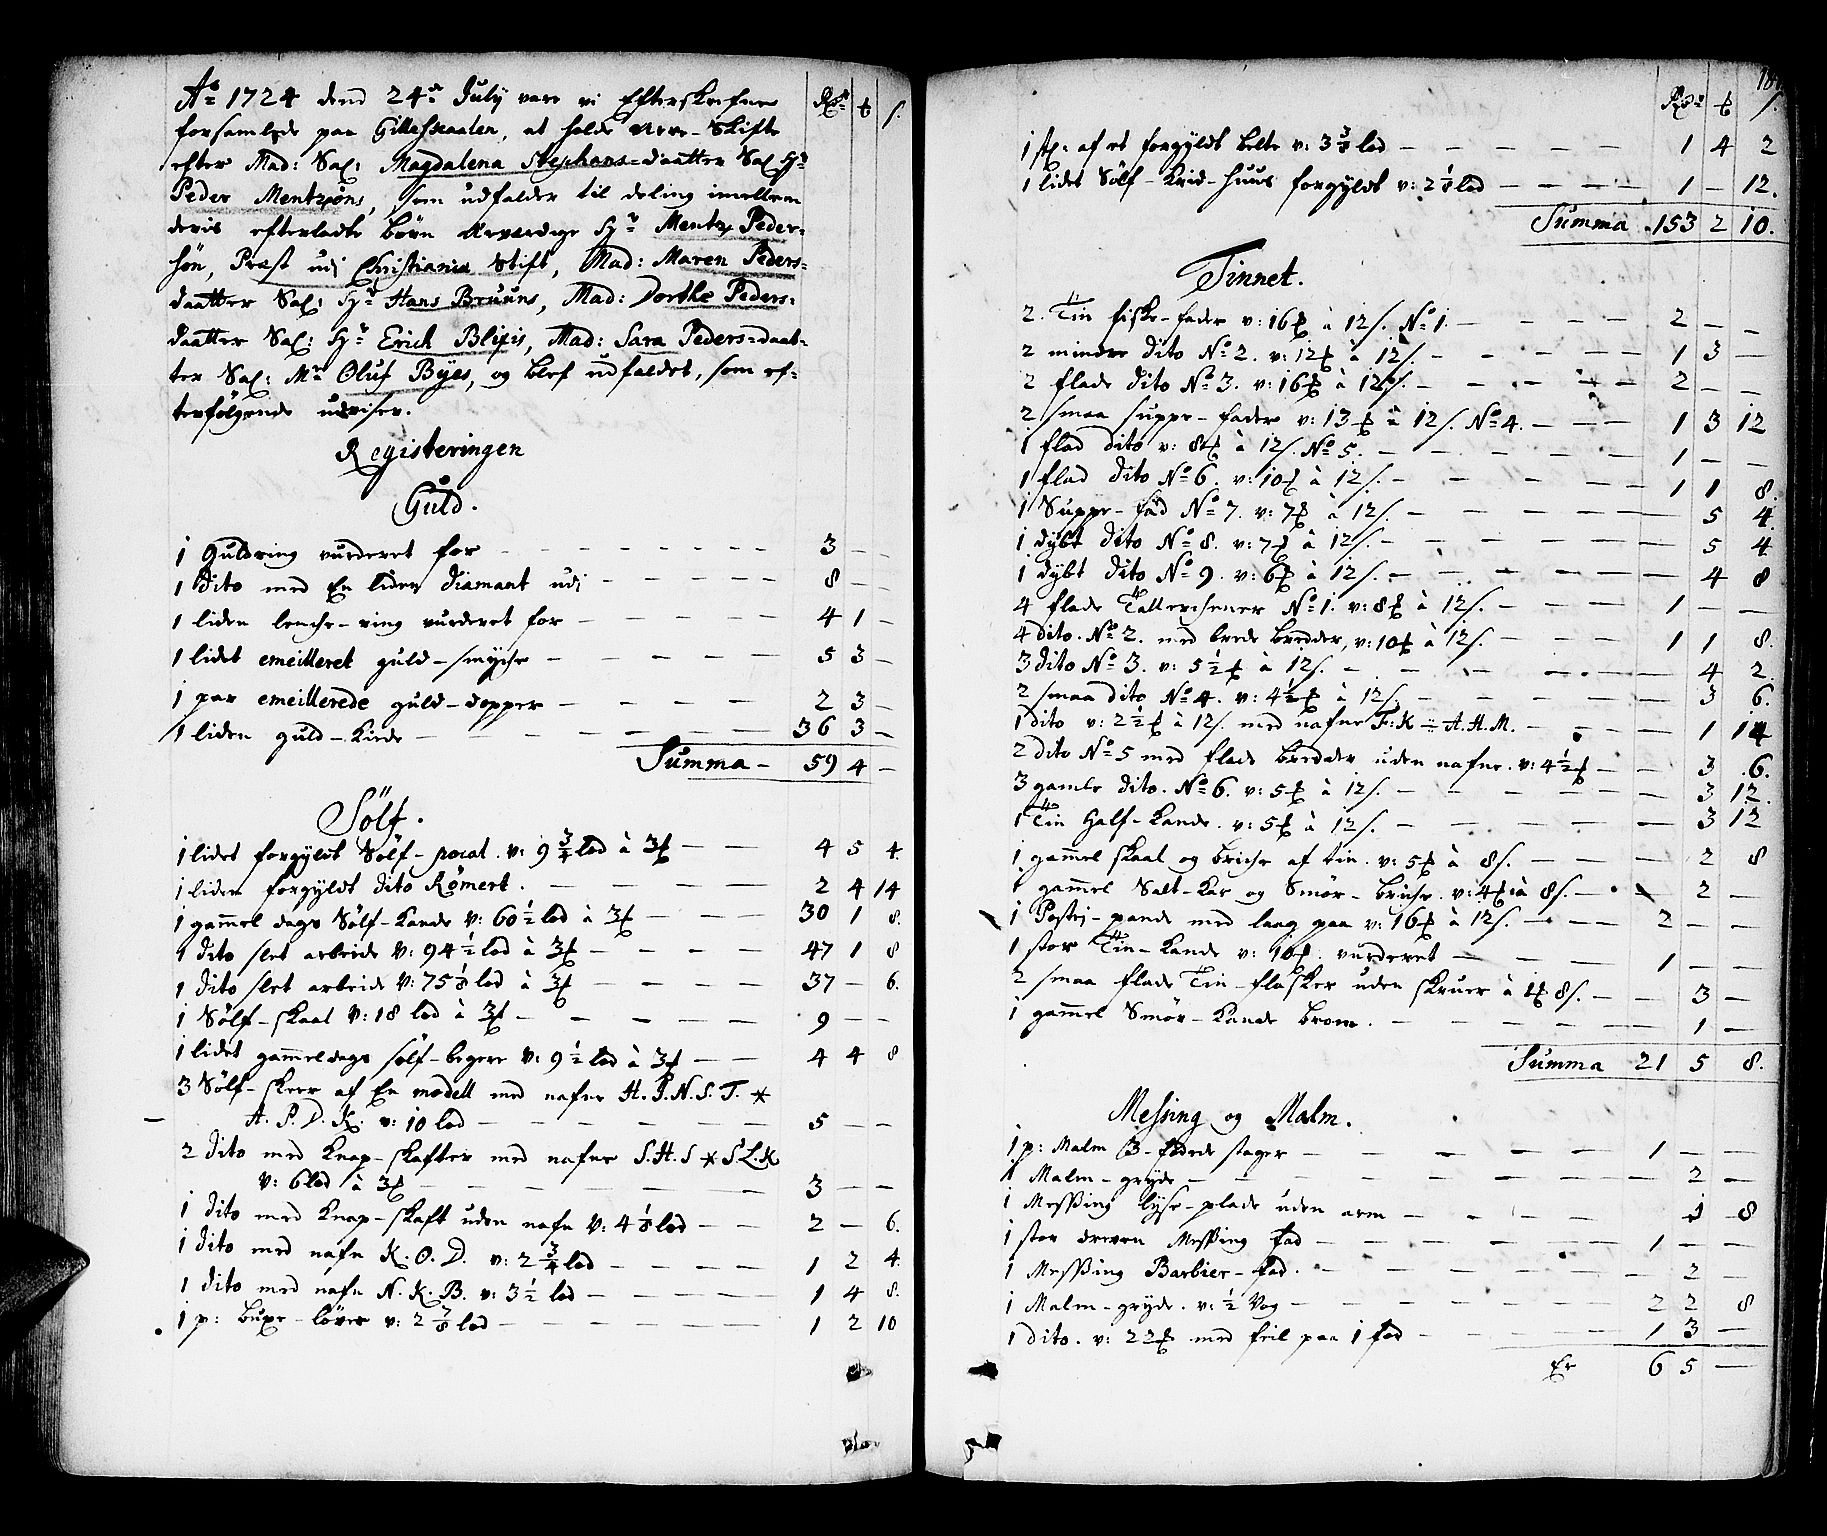 Aº 1724 dend 24de July vare vi Efterskrefne Rdr ₰ s.
forsamlede paa Gilleskaalen, at holde Arve-Skifte
efter Mad: Sal: Magdalena Stephans-daatter Sal Hr
Peder Mentzøns, som udfalder til deling imellem
deris efterladte børn Ærværdige Hr Mentz Peder-
søn, Præst udj Christiania Stift, Mad: Maren Peders-
daatter Sal: Hr Hans Bruuns, Mad: Dorthe Peders-
daatter Sal: Hr Erich Blixis, Mad: Sara Peders-daat-
ter Sal: Mr Oluf Byes, og blef udfaldet, som ef-
terfølgende udviser.
Registeringen
Guld.
1 Guldring vurderet for — 3 — —
1 Dito med En liden Diamant udj — 8 — —
1 liden lenche-ring vurderet for — 4 1 —
1 lidet emeilleret guld-smyche — 5 3 —
1 par emeillerede guld-dopper — 2 3 —
1 liden guld-Kiede — 36 3 —
Summa — 59 4 —
Sölf.
1 lidet forgyldt Sölf-pocal. v: 9 3/4 lod à 3₰ — 4 5 4.
1 liden forgyldt dito Römert. — 2 4 14
1 gammel dags Sölf-Kande v: 60 1/2 lod à 3₰ — 30 1 8.
1 dito slet arbeide v: 94 1/2 lod à 3₰ — 47 1 8
1 dito slet arbeide v: 75 1/8 lod à 3₰ — 37 — 6.
1 Sölf-skaal v: 18 lod à 3₰ — 9 — —
1 lidet gammeldags sölf-begere v: 9 1/2 lod à 3₰ — 4 4 8
3 Sölf-skeer af En modell med nafne H. P. N. S. T. *
A. P. D. K. v: 10 lod — 5 — —
2 Dito med Knap-skafter med nafne S. H. S * S L. K
v: 6 lod à 3₰ — 3 — —
1 dito med Knap-skaft uden nafn v: 4 1/8 lod — 2 — 6.
1 dito med nafn K. O. D. v: 2 3/4 lod — 1 2 4.
1 dito med nafn N. K. B. v: 3 1/2 lod — 1 4 8.
1 p: buxe-löver v: 2 7/8 lod — 1 2 10
Rdr ₰ s.
1 st: af et forgyldt belte v: 3 3/8 lod — 1 4 2
1 lidet Sölf-Krid-huus forgyldt v: 2 1/8 lod — 1 — 12.
Summa 153 2 10.
Tinnet.
2. Tin fiske-fader v: 16 ℔ à 12 s. No 1. — 2 — —
2 mindre dito No 2. v: 12 ℔ à 12 s. — 1 3 —
2 flade dito No 3. v: 16 ℔ à 12 s. — 2 — —
2 smaa suppe-fader v: 13 ℔ à 12 s. No 4. — 1 3 12
1 flad dito v: 8 ℔ à 12 s. No 5. — 1 — —
1 flad dito No 6. v: 10 ℔ à 12 s. — 1 1 8.
1 Suppe-fad No 7. v: 7 ℔ à 12 s. — 5 4.
1 dybt dito No 8. v: 7 ℔ à 12 s. — 5 4
1 dybt dito No 9. v: 6 ℔ à 12 s. — 4 8
4 flade Tallerchener No 1. v: 8 ℔ à 12 s. — 1 — —
4 dito. No 2. med brede bredder, v: 10 ℔ à 12 s. — 1 1 8.
3 dito No 3. v: 5 1/2 ℔ à 12 s. — 4 2.
2 smaa dito No 4. v: 4 1/2 ℔ à 12 s. — 3 6.
1 dito v: 2 1/2 ℔ à 12 s. med nafne F: K :: A. H. M. — 1 14
2 dito No 5 med flade bredder uden nafne. v: 4 1/2 ℔ — 3 6.
3 gamle dito. No 6. v: 5 ℔ à 12 s. — 3 12.
1 Tin Half-Kande. v: 5 ℔ à 12 s. — 3 12
1 gammel skaal og briche af tin. v: 5 ℔ à 8 s. — 2 8
1 gammel Salt-Kar og Smör-briche. v: 4 ℔ à 8 s. — 2 —
1 Postej-pande med laag paa v: 16 ℔ à 12 s. — 2 — —
1 stor Tin-Kande v: 10 ℔. vurderet — 1 — —
2 smaa flade Tin-flasker uden skruer à 1₰ 8 s. — 3 —
1 gammel Smör-Kande — 1 —
Summa 21 5 8.
Messing og Malm.
1 p: Malm 3-fodede stager — 1 — —
1 Malm-gryde — 2 —
1 Messing lyse-plade uden arm — 1 8
1 stor dreven Messing fad — 1 — —
1 Messing Barbier-fad. — 2 —
1 Malm-gryde. v: 1/2 Vog — 2 2 8
1 dito. v: 22 ℔ med feil paa 1 fod — 1 3 —
Er 6 5 —